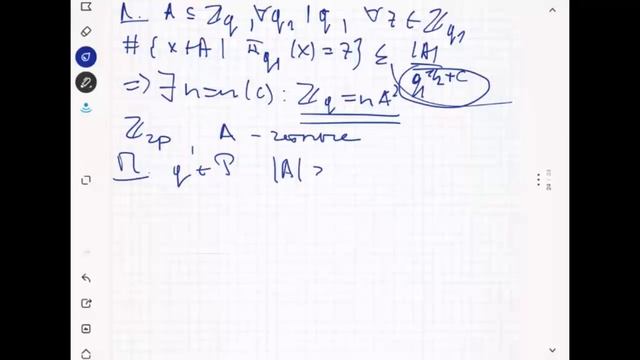 Л. A ⊆ ℤ_q, ∀q₁ | q, ∀z ∈ ℤ_q₁
# { x ∈ A | π_q₁ (x) = z } ≤ |A| / q₁^{2/3+c}
⇒ ∃ n = n(c) : ℤ_q = nA²
ℤ_2p, A - четные
П. q ∈ P |A| >